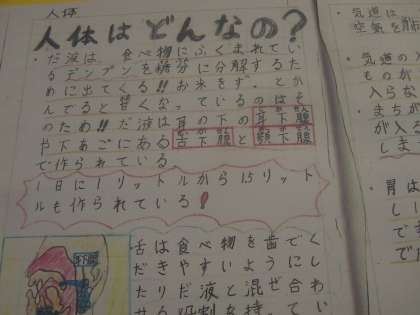 人体
人体はどんなの？
だ液は、食べ物にふくまれてい
るデンプンを糖分に分解するた
めに出てくる!!お米をず、とか
んでると甘くなっているのはそ
のため!!だ液は耳の下の耳下腺
や下あごにある舌下腺と顎下腺
で作られている
1日に1リットルから1.5リット
ルも作られている！
舌は食べ物を歯でく
だきやすいようにし
たりだ液と混ぜ合わ
せる役割を持ってい
気道は
空気を
気道の入
ものが
入らな
まちが
が入る
しま
胃は
し
でき
で